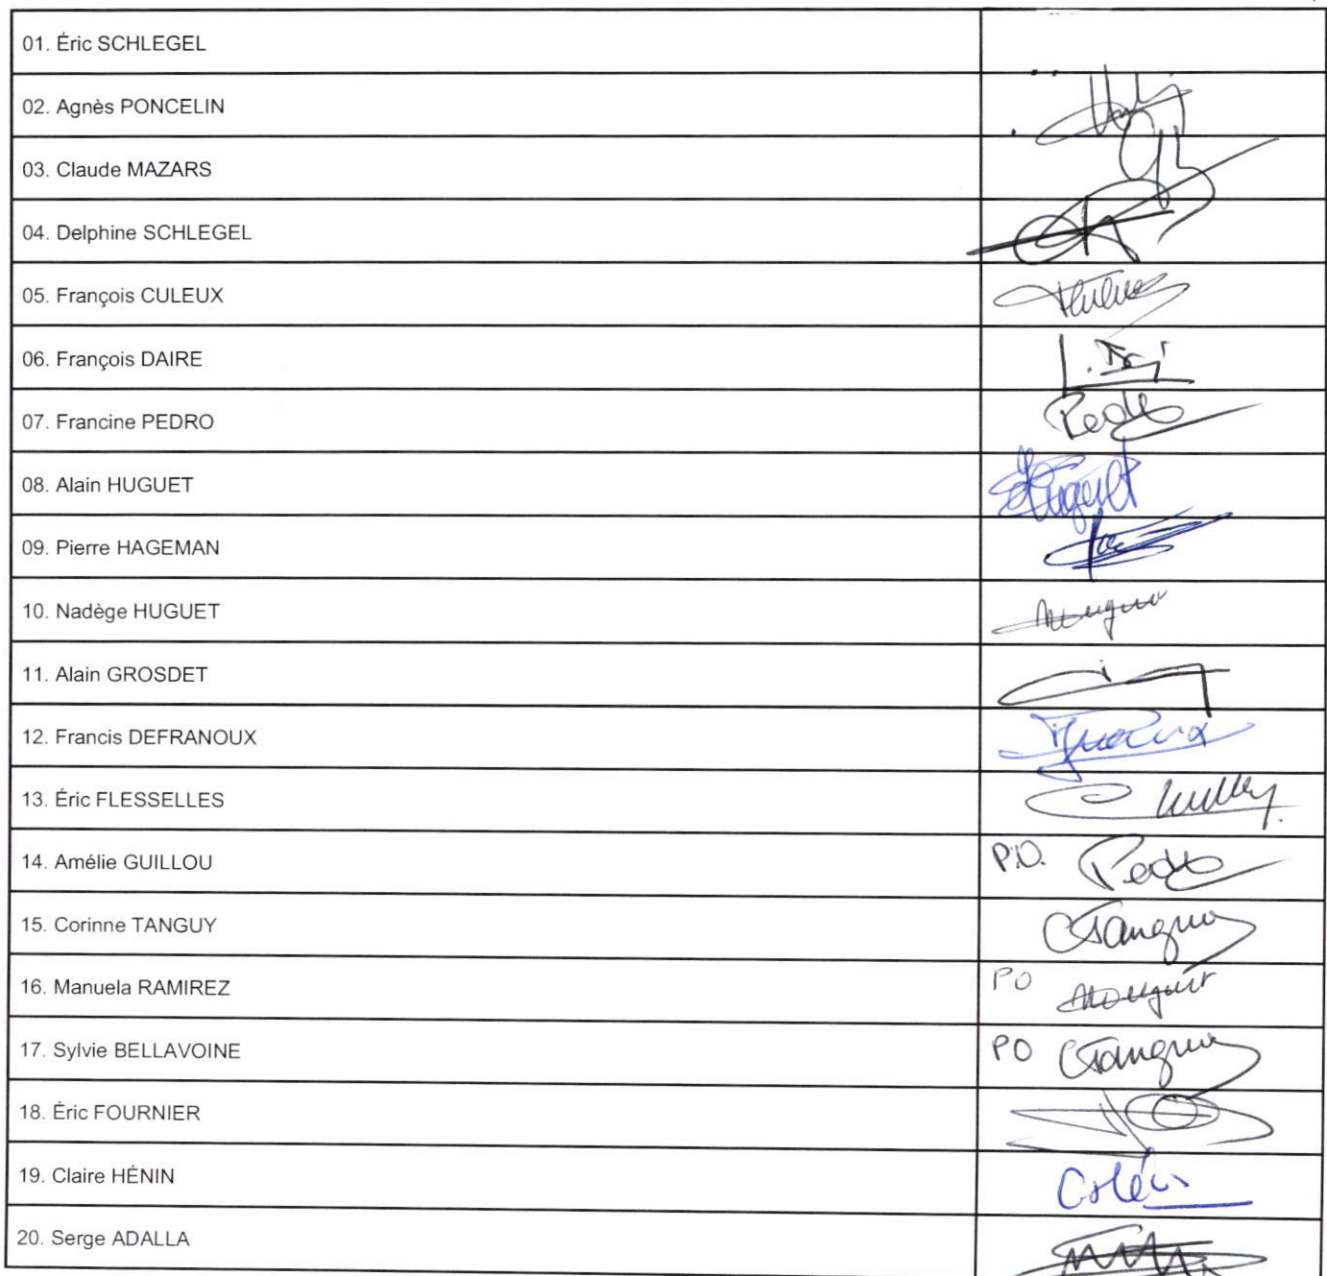 01. Éric SCHLEGEL
02. Agnès PONCELIN
03. Claude MAZARS
04. Delphine SCHLEGEL
05. François CULEUX
06. François DAIRE
07. Francine PEDRO
Pedro
08. Alain HUGUET
Huguet
09. Pierre HAGEMAN
10. Nadège HUGUET
11. Alain GROSDET
12. Francis DEFRANOUX
13. Éric FLESSELLES
14. Amélie GUILLOU
P.O. Pedro
15. Corinne TANGUY
CTanguy
16. Manuela RAMIREZ
PO
17. Sylvie BELLAVOINE
PO CTanguy
18. Éric FOURNIER
19. Claire HÉNIN
20. Serge ADALLA